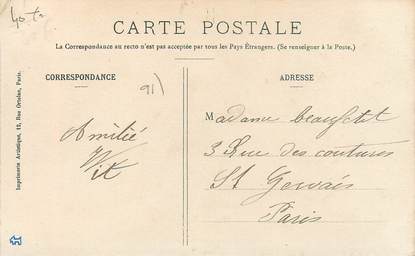 CARTE POSTALE
La Correspondance au recto n'est pas acceptée par tous les Pays Étrangers. (Se renseigner à la Poste.)
CORRESPONDANCE
ADRESSE
91)
Amitié
Madame
3 Rue des coutures
St Gervais
Paris
Imprimerie Artistique, 12, Rue Ortolan, Paris.